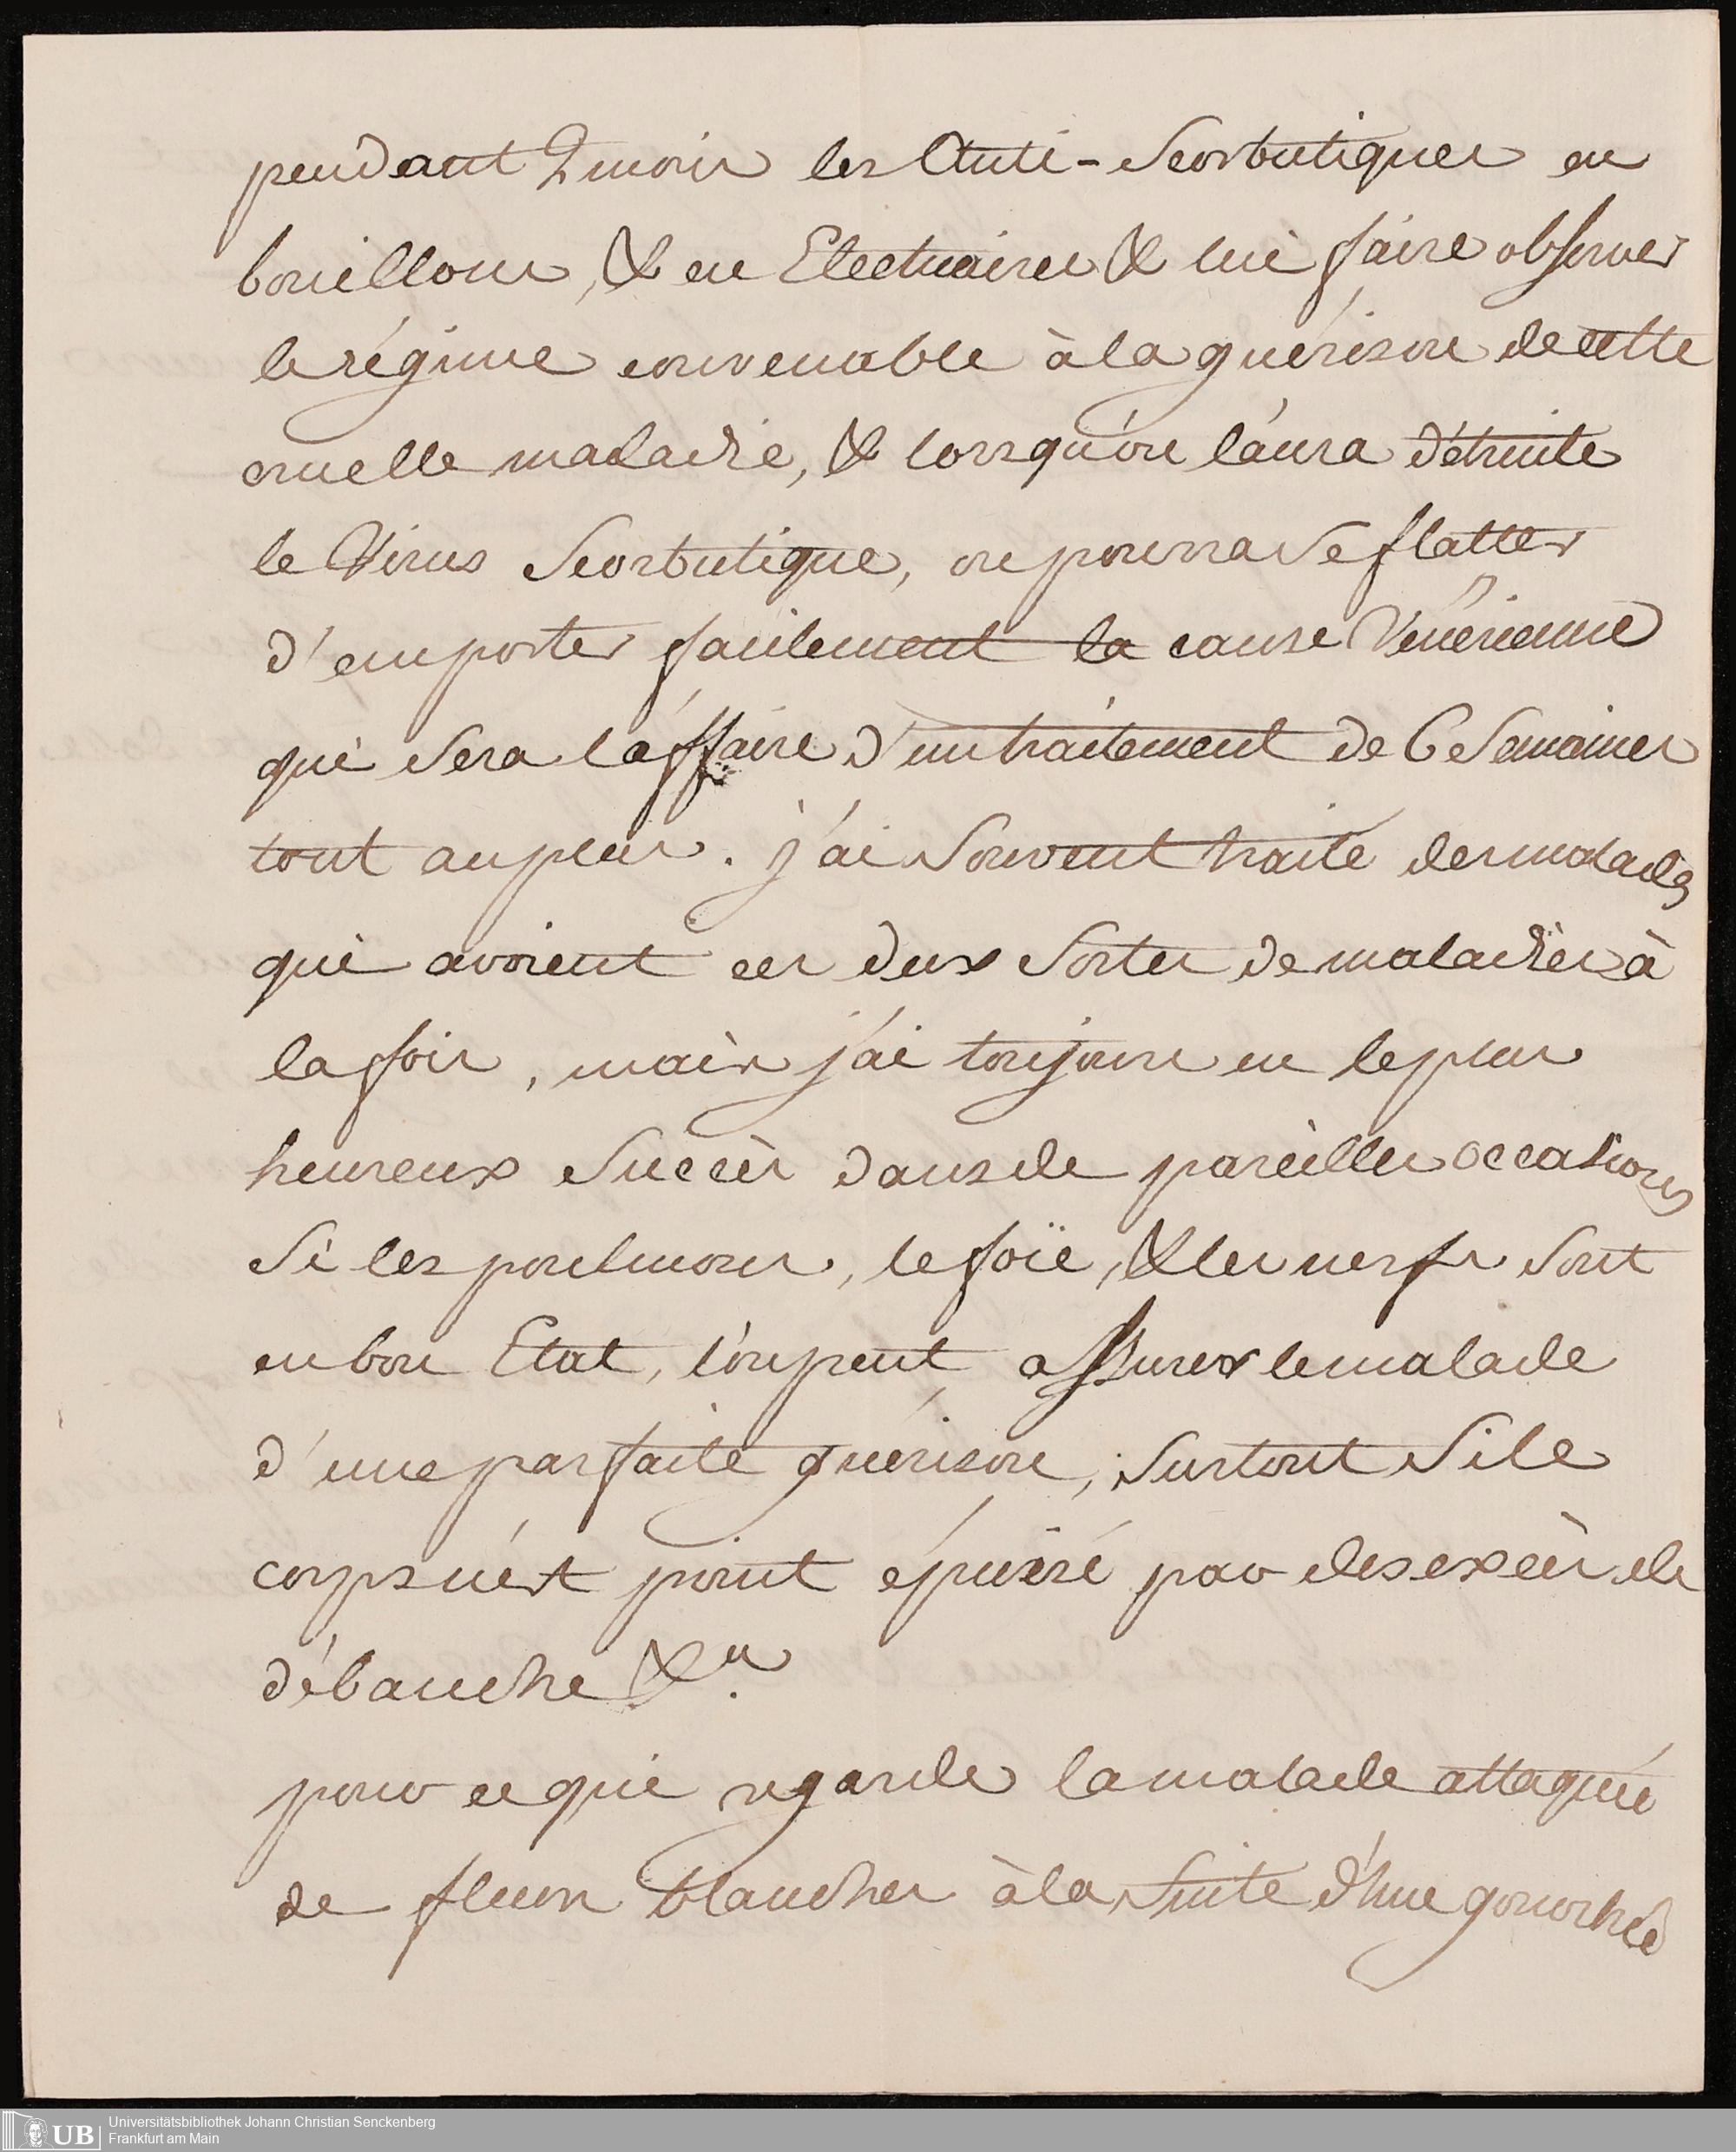 pendant 2 mois les Anti-Scorbutiques en
bouillons, & en Electuaires & lui faire observer
le régime convenable à la guérison de cette
cruelle maladie, & lorsqu'on l'aura détruite
le Virus Scorbutique, on pourra se flatter
d'emporter facilement la cause Vénérienne
qui sera l'affaire d'un traitement de 6 Semaines
tout au plus. j'ai Souvent traité des malades
qui avoient ces deux Sortes de maladies à
la fois, mais j'ai toujours eu le plus
heureux Succès dans de pareilles occasions
Si les poulmons, le foïe, & les nerfs Sont
en bon Etat, l'on peut assurer le malade
d'une parfaite guérison, Surtout Si le
corps n'est point épuisé par des excès de
débauche &a.
pour ce qui regarde la malade attaquée
de fleurs blanches à la Suite d'Une gonorhée
Universitätsbibliothek Johann Christian Senckenberg
UB Frankfurt am Main